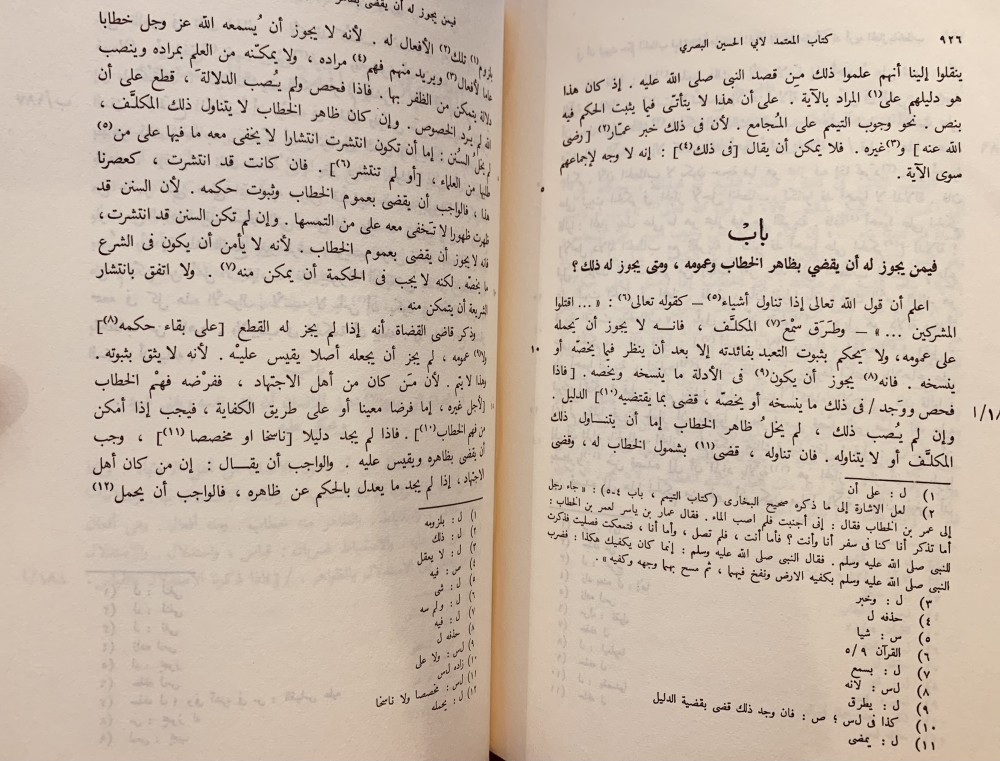 ٩٢٦
كتاب المعتمد لابي الحسين البصري
ينقلوا إلينا أنهم علموا ذلك من قصد النبي صلى الله عليه . إذ كان هذا
هو دليلهم على(١) المراد بالآية . على أن هذا لا يتأتّى فيما يثبت الحكم فيه
بنص . نحو وجوب التيمم على المجامع . لأن فى ذلك خبر عمّار(٢) [رضى
الله عنه] و(٣)غيره . فلا يمكن أن يقال [فى ذلك(٤)] : إنه لا وجه لإجماعهم
سوى الآية .
٥
بابْ
فيمن يجوز له أن يقضي بظاهر الخطاب وعمومه ، ومتى يجوز له ذلك ؟
اعلم أن قول الله تعالى إذا تناول أشياء(٥) — كقوله تعالى(٦) : « ... اقتلوا
المشركين ... » — وطَرَق سمْعَ(٧) المكلَّف ، فانــه لا يجوز أن يَحمله
على عمومه، ولا يحكم بثبوت التعبد بفائدته إلا بعد أن ينظر فيما يخصّه أو
١٠
ينسخه . فانه(٨) يجوز أن يكون(٩) فى الأدلة ما ينسخه ويخصه . [فاذا
فحص ووَجد / فى ذلك ما ينسخه أو يخصّه ، قضى بما يقتضيه(١٠)] الدليل .
وإن لم يُصب ذلك ، لم يخلُ ظاهر الخطاب إما أن يتنــاول ذلك
المكلَّف أو لا يتناوله . فان تناوله ، قضى(١١) بشمول الخطاب له ، وقضى
١) ل : على أن
٢) لعل الاشارة إلى ما ذكره صحيح البخارى (كتاب التيمم ، باب ٤-٥) : « جاء رجل
إلى عمر بن الخطاب فقال : إنى أجنبت فلم اصب الماء . فقال عمار بن ياسر لعمر بن الخطاب :
أما تذكر أنا كنا فى سفر أنا وأنت ؟ فأما أنت ، فلم تصل ، وأما أنا ، فتمعكت فصليت فذكرت
للنبي صلى الله عليه وسلم . فقال النبي صلى الله عليه وسلم : إنما كان يكفيك هكذا : فضرب
النبى صلى الله عليه وسلم بكفيه الارض ونفخ فيهما ، ثم مسح بهما وجهه وكفيه » .
٣) ل : وخبر
٤) حذفه ل
٥) س : شيا
٦) القرآن ٥/٩
٧) ل : بسمع
٨) لس : لانه
٩) ل : يطرق
١٠) كذا فى لس ؛ ص : فان وجد ذلك قضى بقضية الدليل
١١) ل : يمضى
فيمن يجوز له أن يقضى
بلزوم(١) تلك(٢) الأفعال له . لأنه لا يجوز أن يُسمعه الله عز وجل خطابا
عاما لأفعال(٣) ويريد منهم فهم(٤) مراده ، ولا يمكّنه من العلم بمراده وينصب
دلالة يتمكن من الظفر بها . فاذا فحص ولم يُصب الدلالة ، قطع على أن
الله لم يُرد الخصوص . وإن كان ظاهر الخطاب لا يتناول ذلك المكلَّف ،
لم يخلُ السُنن : إما أن تكون انتشرت انتشارا لا يخفى معه ما فيها على من(٥)
طلبها من العلماء ، [أو لم تنتشر(٦)] . فان كانت قد انتشرت ، كعصرنا
هذا ، فالواجب أن يقضى بعموم الخطاب وثبوت حكمه . لأن السنن قد
ظهرت ظهورا لا تخفى معه على من التمسها . وإن لم تكن السنن قد انتشرت،
فانه لا يجوز أن يقضى بعموم الخطاب . لأنه لا يأمن أن يكون فى الشرع
ما يخصّه . لكنه لا يجب فى الحكمة أن يمكن منه(٧) . ولا اتفق بانتشار
الشريعة أن يتمكن منه .
وذكر قاضى القضاة أنه إذا لم يجز له القطع [على بقاء حكمه(٨)]
ولا(٩) عمومه ، لم يجز أن يجعله أصلا يقيس عليْه . لأنه لا يثق بثبوته .
وهذا لا يتم . لأن مَن كان من أهل الاجتهاد ، ففرْضه فهْم الخطاب
[لأجل غيره ، إما فرضا معينا أو على طريق الكفاية ، فيجب إذا أمكن
من فهم الخطاب(١٠)] . فاذا لم يجد دليلا [ناسخا او مخصصا(١١)] ، وجب
أن يقضى بظاهره ويقيس عليه . والواجب أن يقــال : إن من كان أهل
الاجتهاد ، إذا لم يجد ما يعدل بالحكم عن ظاهره ، فالواجب أن يحمل(١٢)
١) ل : بلزومه
٢) ل : ذلك
٣) ل : لا يعقل
٤) ص : فيه
٥) ل : شى
٦) ل : ولم سه
٧) ل : فيه
٨) حذفه ل
٩) لس : ولا على
١٠) زاده لس
١١) لس : مخصصا ولا ناسخا
١٢) ل : يحمله